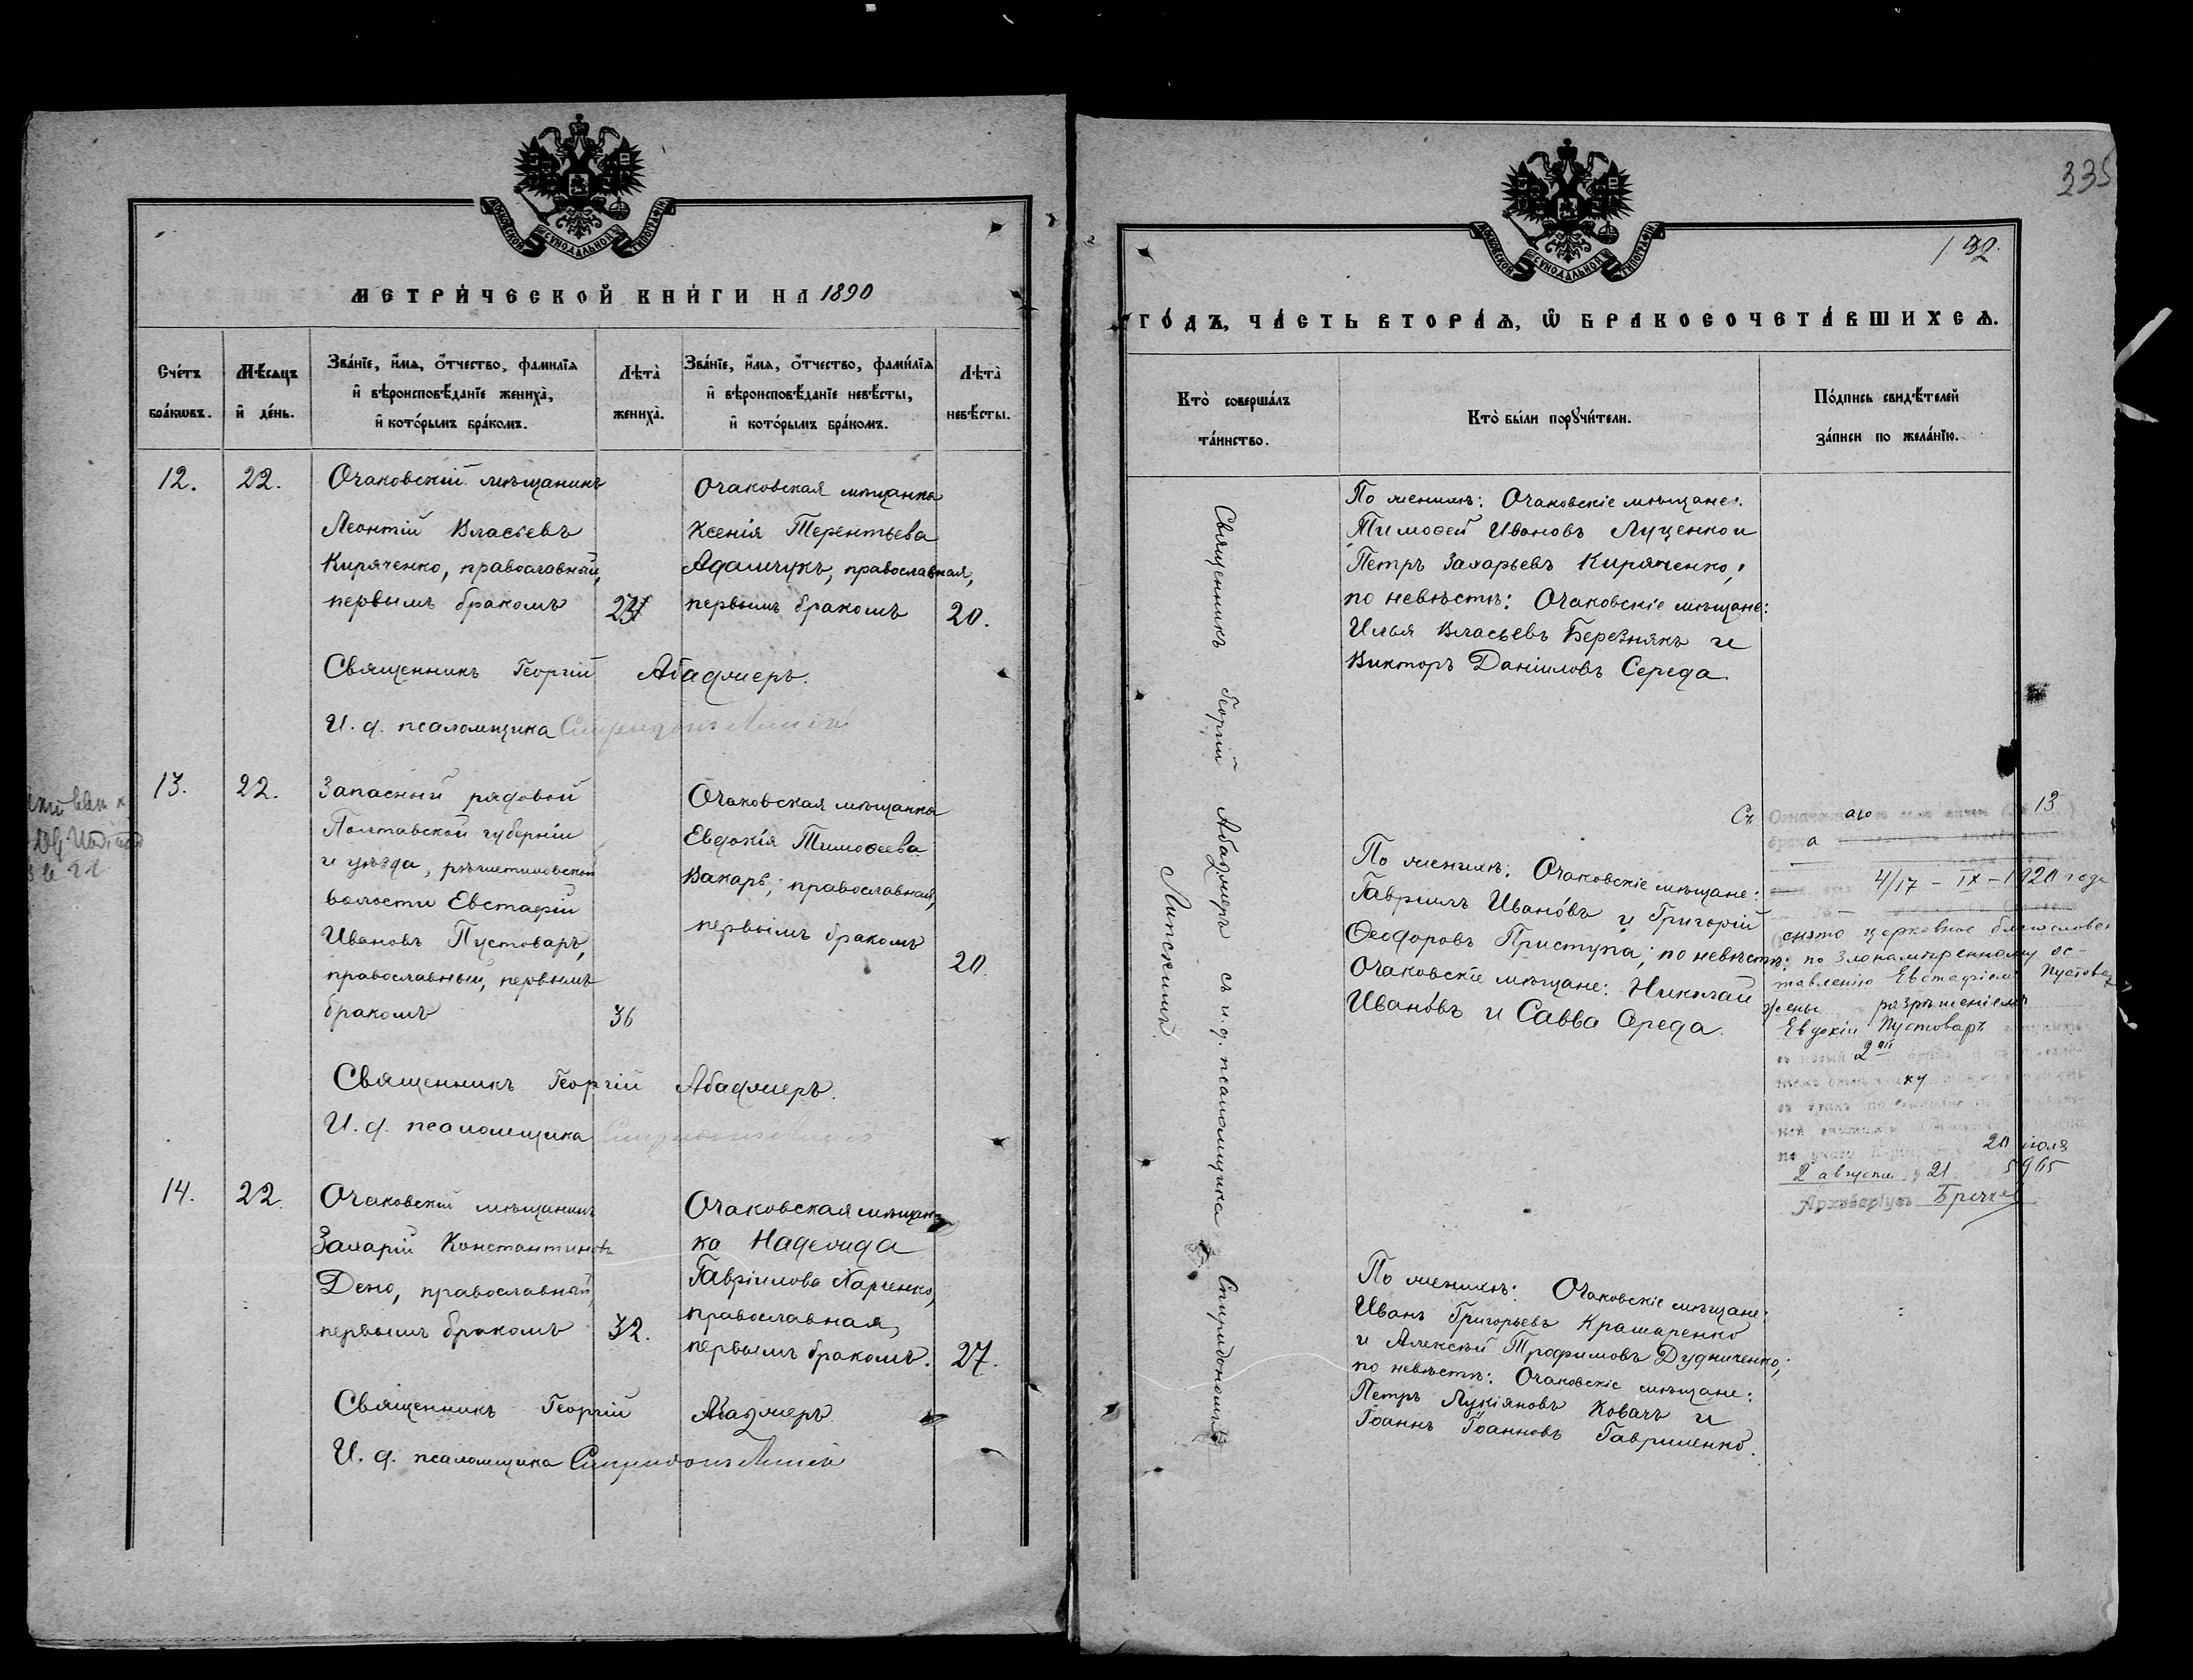 МОСКОВСКОЙ СУНОДАЛЬНОЙ ТИПОГРАФІИ
МЕТРИ́ЧЕСКОЙ КНИ́ГИ НА 1890
Сче́тъ бра́кωвъ.
Мѣ́сяцъ и҆ де́нь.
Зва́нїе, и҆́мѧ, ѻ҆́тчество, фамилїѧ
и҆ вѣроисповѣ́данїе жениха̀,
и҆ кото́рымъ бра́комъ.
Лѣта̀ жениха̀.
Зва́нїе, и҆́мѧ, ѻ҆́тчество, фами́лїѧ
и҆ вѣроисповѣ́данїе невѣ́сты,
и҆ кото́рымъ бра́комъ.
Лѣта̀ невѣ́сты.
12.
22.
Очаковскій мѣщанинъ
Леонтій Власьевъ
Киряченко, православный,
первымъ бракомъ
Очаковская мѣщанка
Ксенія Терентьева
Адамчукъ, православная,
первымъ бракомъ
20.
Священникъ Георгій Абаджеръ.
И. д. псаломщика Спиридонъ
13.
22.
Запасный рядовой
Полтавской губерніи
и уѣзда, рѣшетиловской
волости Евстафій
Ивановъ Пустоваръ,
православный, первымъ
бракомъ
36
Очаковская мѣщанка
Евдокія Тимоѳеева
Вакарь, православная,
первымъ бракомъ
20.
Священникъ Георгій Абаджеръ.
И. д. псаломщика
14.
22.
Очаковскій мѣщанинъ
Захарій Константиновъ
Дено, православный,
первымъ бракомъ
32.
Очаковская мѣщан-
ка Надежда
Гавріилова Харченко,
православная,
первымъ бракомъ.
27.
Священникъ Георгій Абаджеръ.
И. д. псаломщика Спиридонъ
335
МОСКОВСКОЙ СУНОДАЛЬНОЙ ТИПОГРАФІИ
132.
ГО́ДЪ, ЧА́СТЬ ВТОРА́Ѧ, Ѽ БРАКОСОЧЕТА́ВШИХСѦ.
Кто̀ соверша́лъ
та́инство.
Кто̀ бы́ли порꙋчи́тели.
По́дпись свидѣ́телей
за́писи по жела́нїю.
Священникъ Георгій Абаджеръ съ и. д. псаломщика Спиридономъ
Липскимъ.
По женихѣ: Очаковскіе мѣщане:
Тимоѳей Ивановъ Луценко и
Петръ Захарьевъ Киряченко;
по невѣстѣ: Очаковскіе мѣщане:
Илья Власьевъ Березнякъ и
Викторъ Даніиловъ Середа.
По женихѣ: Очаковскіе мѣщане:
Гавріилъ Ивановъ и Григорій
Ѳеодоровъ Приступа; по невѣстѣ:
Очаковскіе мѣщане: Николай
Ивановъ и Савва Середа.
Съ аго 13
а
4/17 - IX - 1920 года
снято церковное благослове
по злонамѣренному ос-
тавленію Евстафіемъ Пустовар
жены разрѣшеніемъ
Евдокіи Пустоваръ
2ой
ку
20 іюля
2 августа 21 5965
Архиваріусъ
По женихѣ: Очаковскіе мѣщане:
Иванъ Григорьевъ Крамаренко
и Алексѣй Трофимовъ Дудниченко;
по невѣстѣ: Очаковскіе мѣщане:
Петръ Лукіяновъ Ковачъ и
Іоаннъ Іоанновъ Гавриленко.